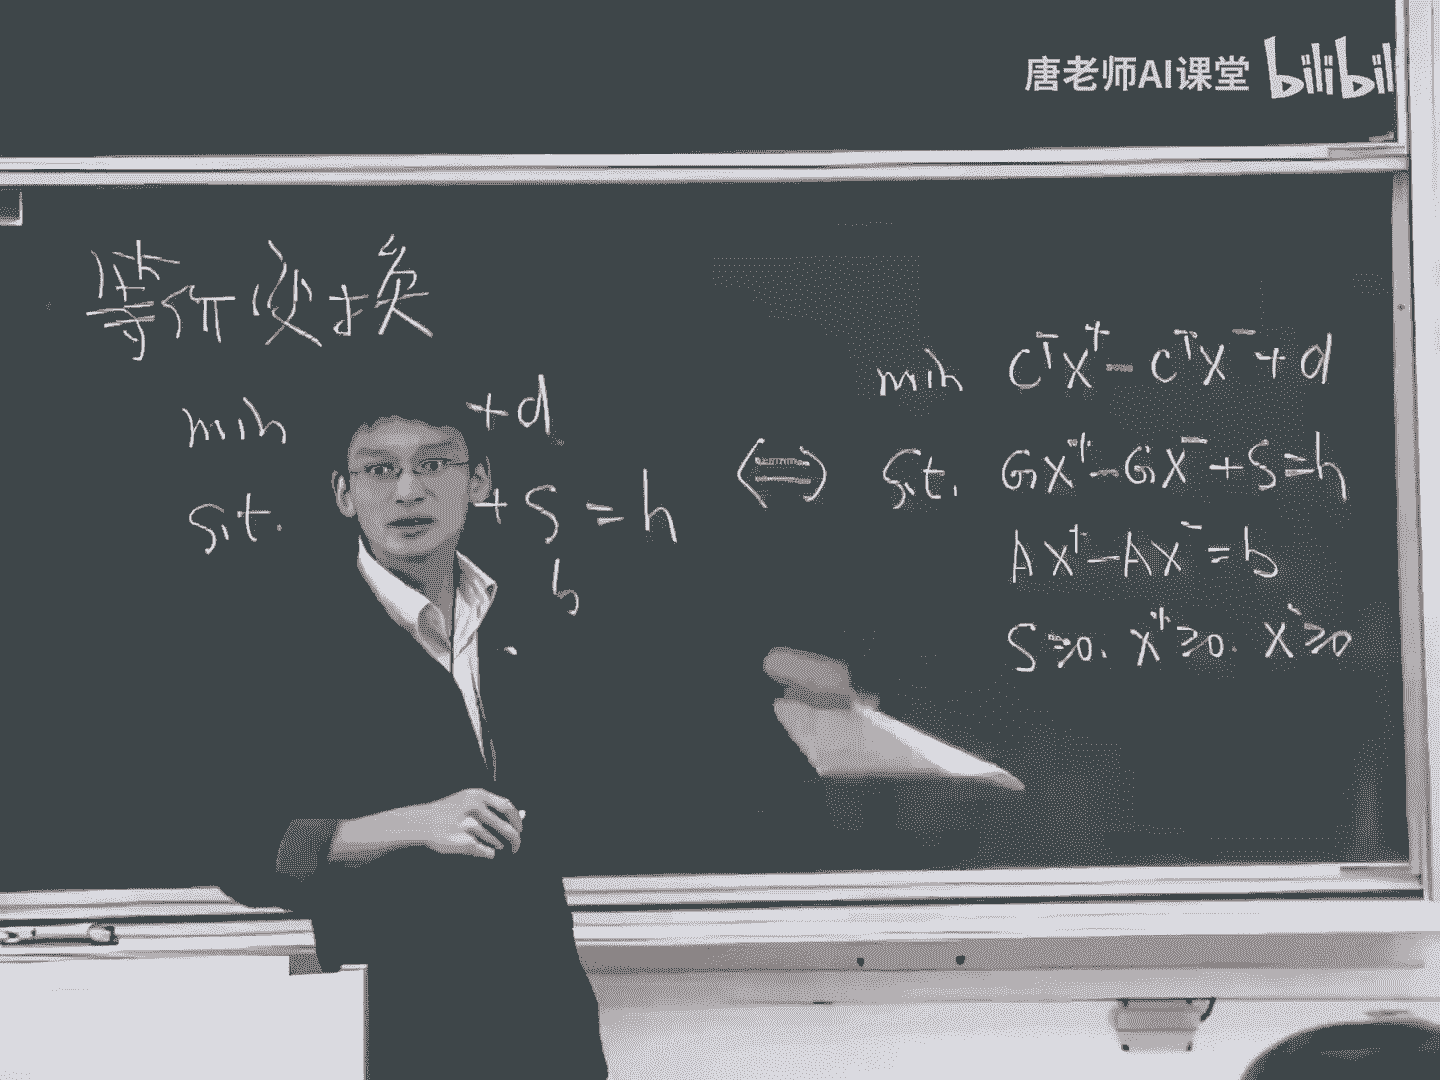 唐老师AI课堂 bilibili
等价变换
min +d
s.t. +S=h
b
⇔
min Cᵀx⁺-cᵀx⁻+d
s.t. Gx⁺-Gx⁻+S=h
Ax⁺-Ax⁻=b
S≥0. x⁺≥0. x⁻≥0